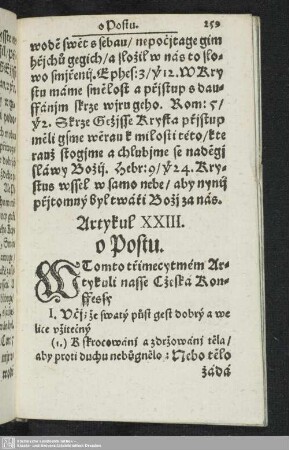 o Postu. 259
wodě swět s sebau / nepočjtage gim
hřjchů gegich / a složil w nás to slo-
wo smjřenj. Ephes: 3 / ẏ 12. W Kry
stu máme smělost a přjstup s dau-
ffánjm skrze wjru geho. Rom: 5 /
ẏ 2. Skrze Gežjsse Krysta přjstup
měli gsme wěrau k milosti této / kte
rauž stogjme a chlubjme se nadějj
sláwy Božij. Hebr: 9 / ẏ 24. Kry-
stus wssel w samo nebe / aby nynij
přjtomný byl twáři Božj za nás.
Artykul XXIII.
o Postu.
W Tomto třimecytmém Ar-
tykuli nasse Cžeská Kon-
ffessy
I. Včj: že swatý půst gest dobrý a we
lice vžitečný
(1.) K skrocowánj a zdržowánj těla /
aby proti duchu nebůgnělo: Nebo tělo
žádá